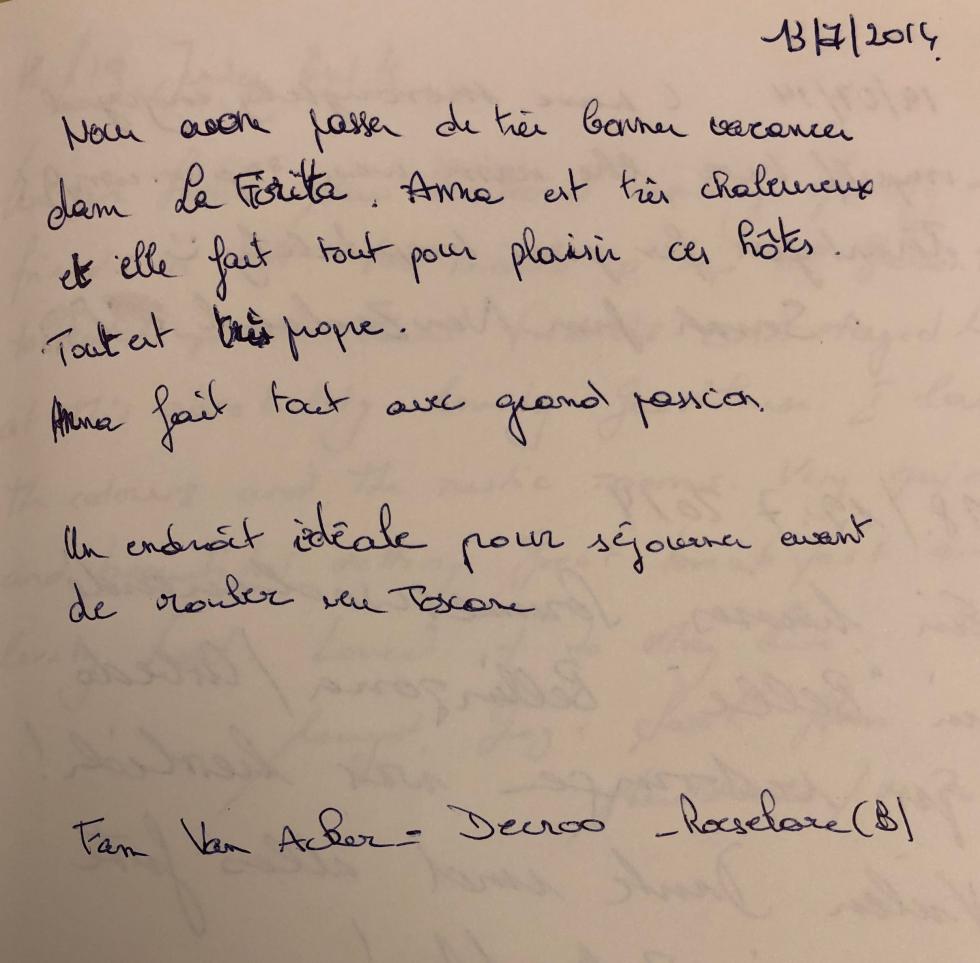 13/7/2014
Nous avons passer de très bonnes vacances
dans La Fiorita. Anna est très chaleureux
et elle fait tout pour plaisir ces hôtes.
Tout est très propre.
Anna fait tout avec grand passion.
Un endroit idéale pour séjourner avant
de rouler vers Toscane
Fam Van Acker - Decroo - Roeselare (B)